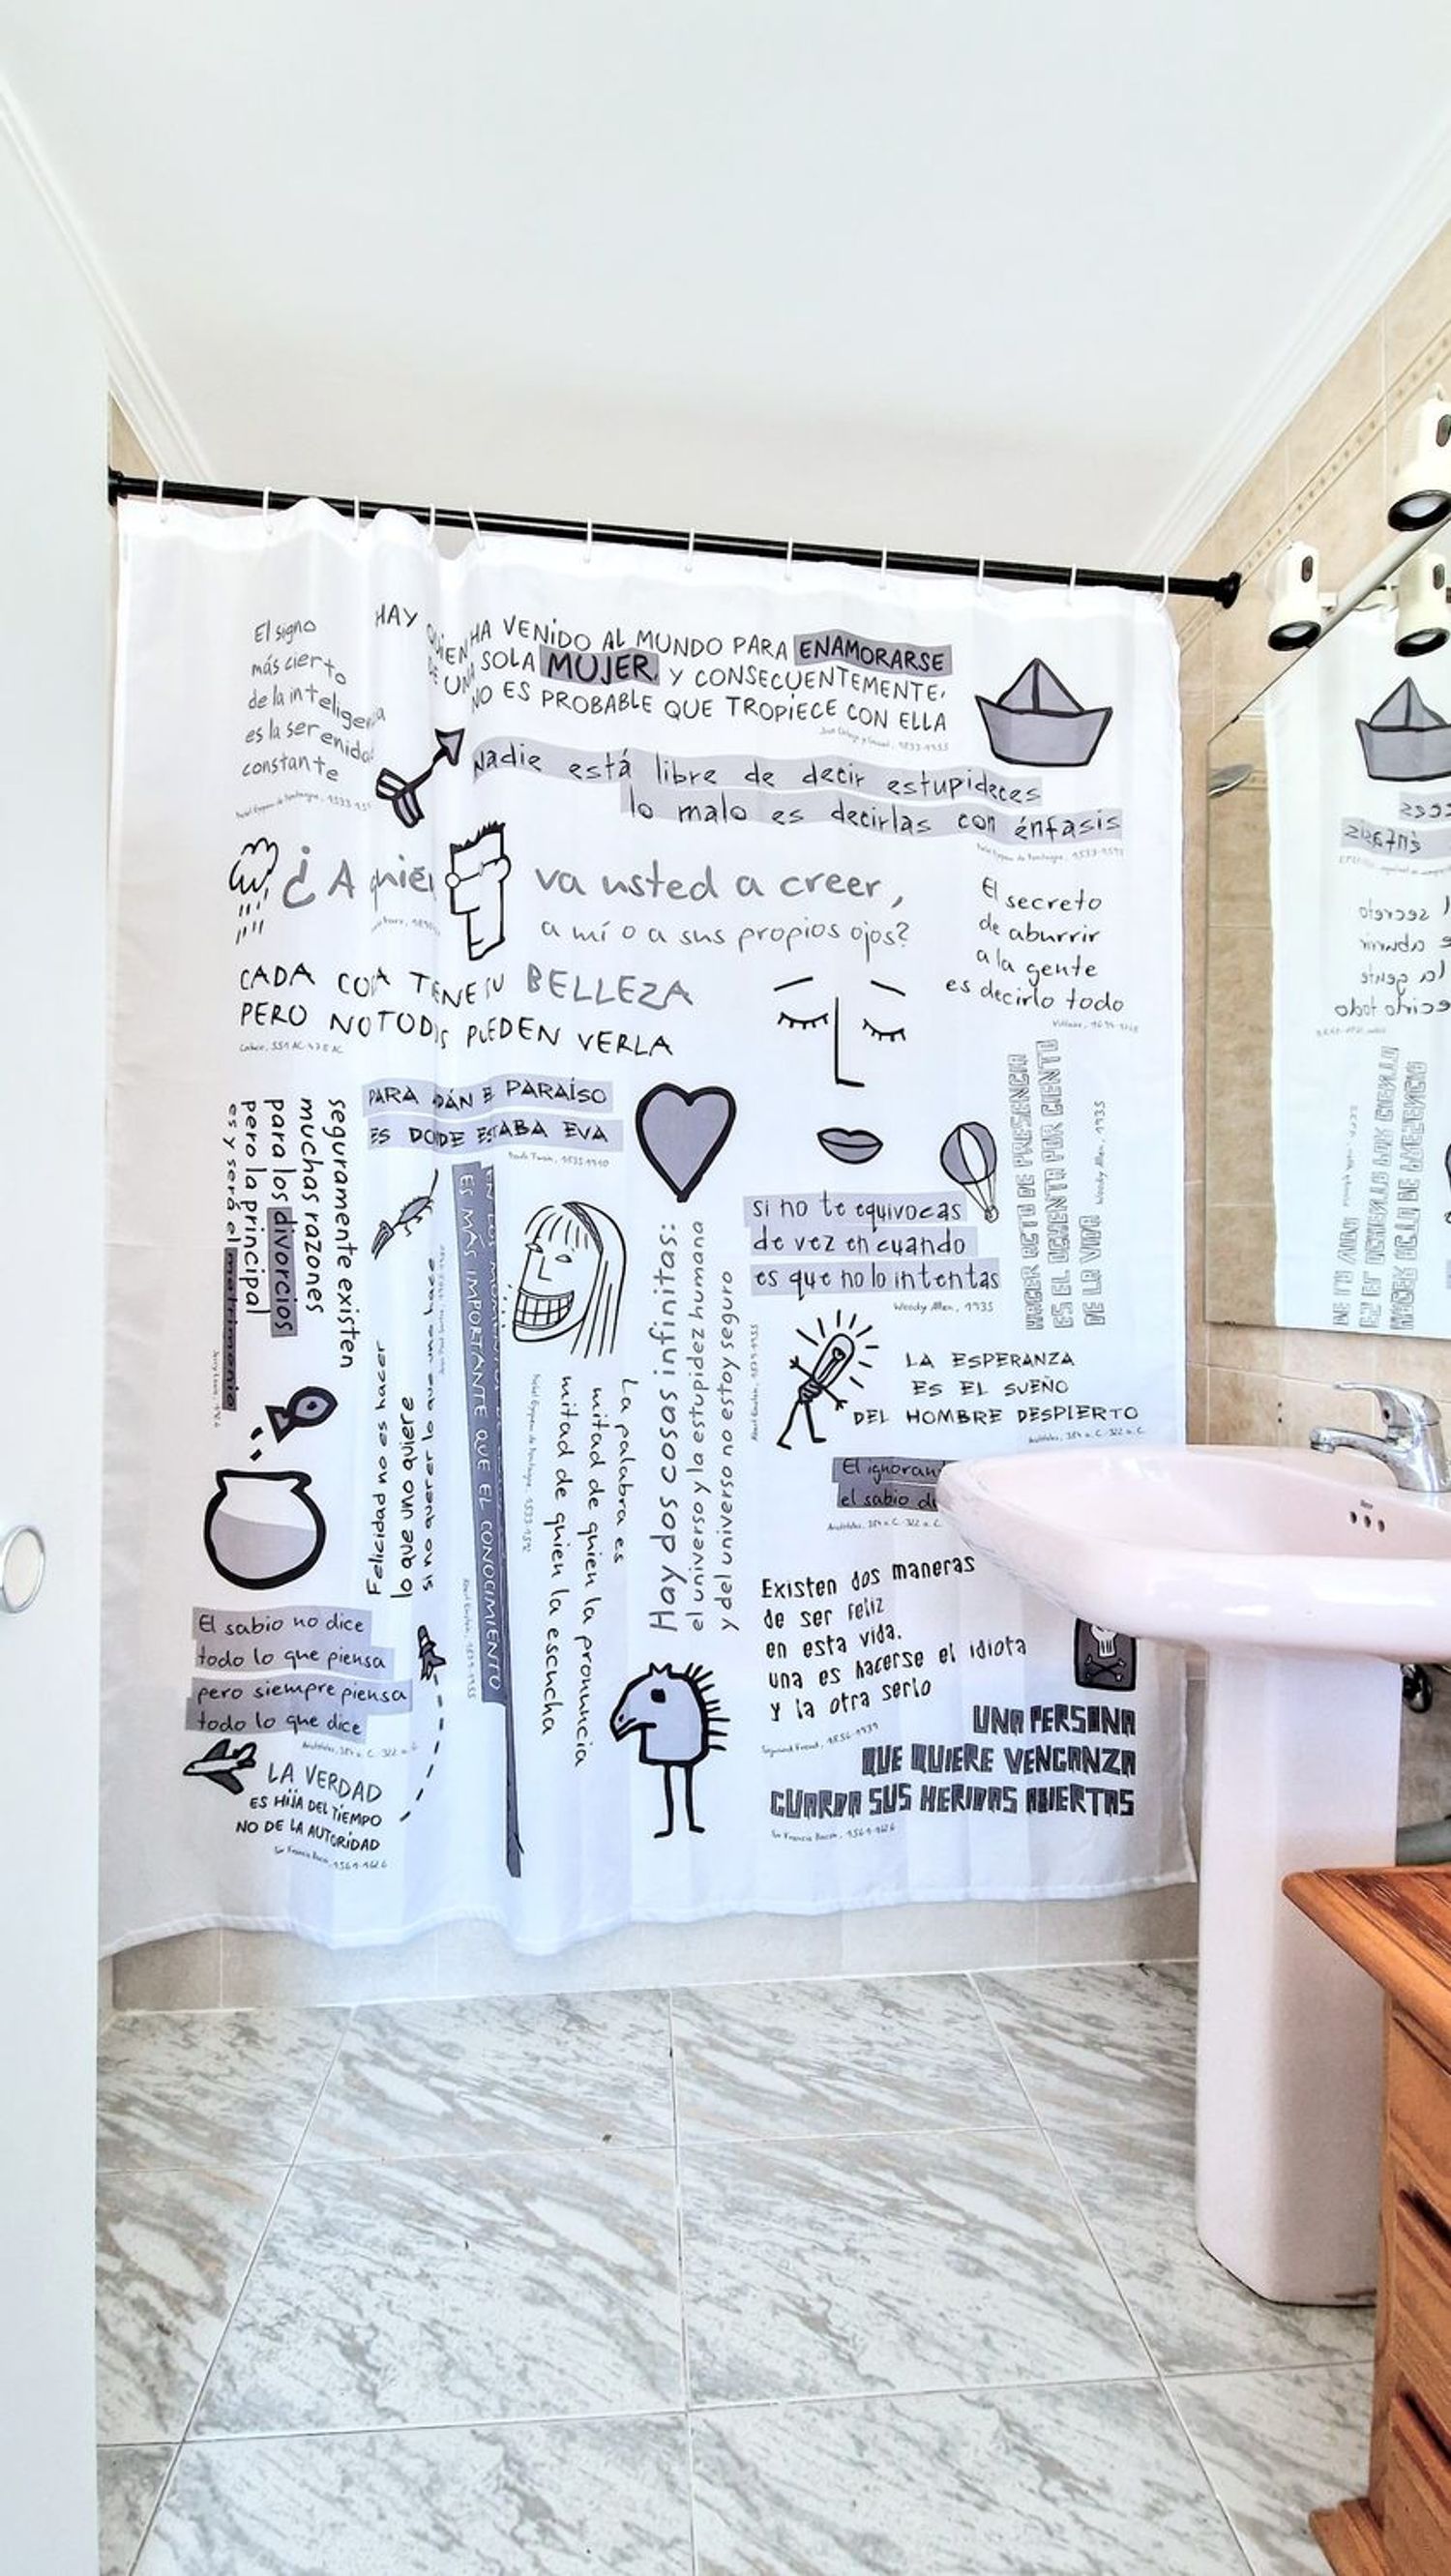 El signo
más cierto
de la inteligencia
es la serenidad
constante
HAY QUIEN HA VENIDO AL MUNDO PARA ENAMORARSE
DE UNA SOLA MUJER Y CONSECUENTEMENTE,
NO ES PROBABLE QUE TROPIECE CON ELLA
Nadie está libre de decir estupideces
lo malo es decirlas con énfasis
¿A quién va usted a creer,
a mí o a sus propios ojos?
El secreto
de aburrir
a la gente
es decirlo todo
CADA COSA TIENE SU BELLEZA
PERO NO TODOS PUEDEN VERLA
PARA ADÁN E PARAÍSO
ES DONDE ESTABA EVA
Mark Twain, 1835-1910
seguramente existen
muchas razones
para los divorcios
pero la principal
es y será el matrimonio
Felicidad no es hacer
lo que uno quiere
si no querer lo que uno hace
ES MÁS IMPORTANTE QUE EL CONOCIMIENTO
La palabra es
mitad de quien la pronuncia
mitad de quien la escucha
Hay dos cosas infinitas:
el universo y la estupidez humana
y del universo no estoy seguro
si no te equivocas
de vez en cuando
es que no lo intentas
Woody Allen, 1935
HACER ACTO DE PRESENCIA
ES EL OCHENTA POR CIENTO
DE LA VIDA
Woody Allen, 1935
LA ESPERANZA
ES EL SUEÑO
DEL HOMBRE DESPIERTO
Aristóteles, 384 a. C. 322 a. C.
El ignoran
el sabio du
Aristóteles, 384 a. C. 322 a. C.
Existen dos maneras
de ser feliz
en esta vida.
una es hacerse el idiota
y la otra serlo
Sigmund Freud, 1856-1939
UNA PERSONA
QUE QUIERE VENGANZA
GUARDA SUS HERIDAS ABIERTAS
Sir Francis Bacon, 1561-1626
El sabio no dice
todo lo que piensa
pero siempre piensa
todo lo que dice
Aristóteles, 384 a. C. 322 a. C.
LA VERDAD
ES HIJA DEL TIEMPO
NO DE LA AUTORIDAD
Sir Francis Bacon, 1561-1626